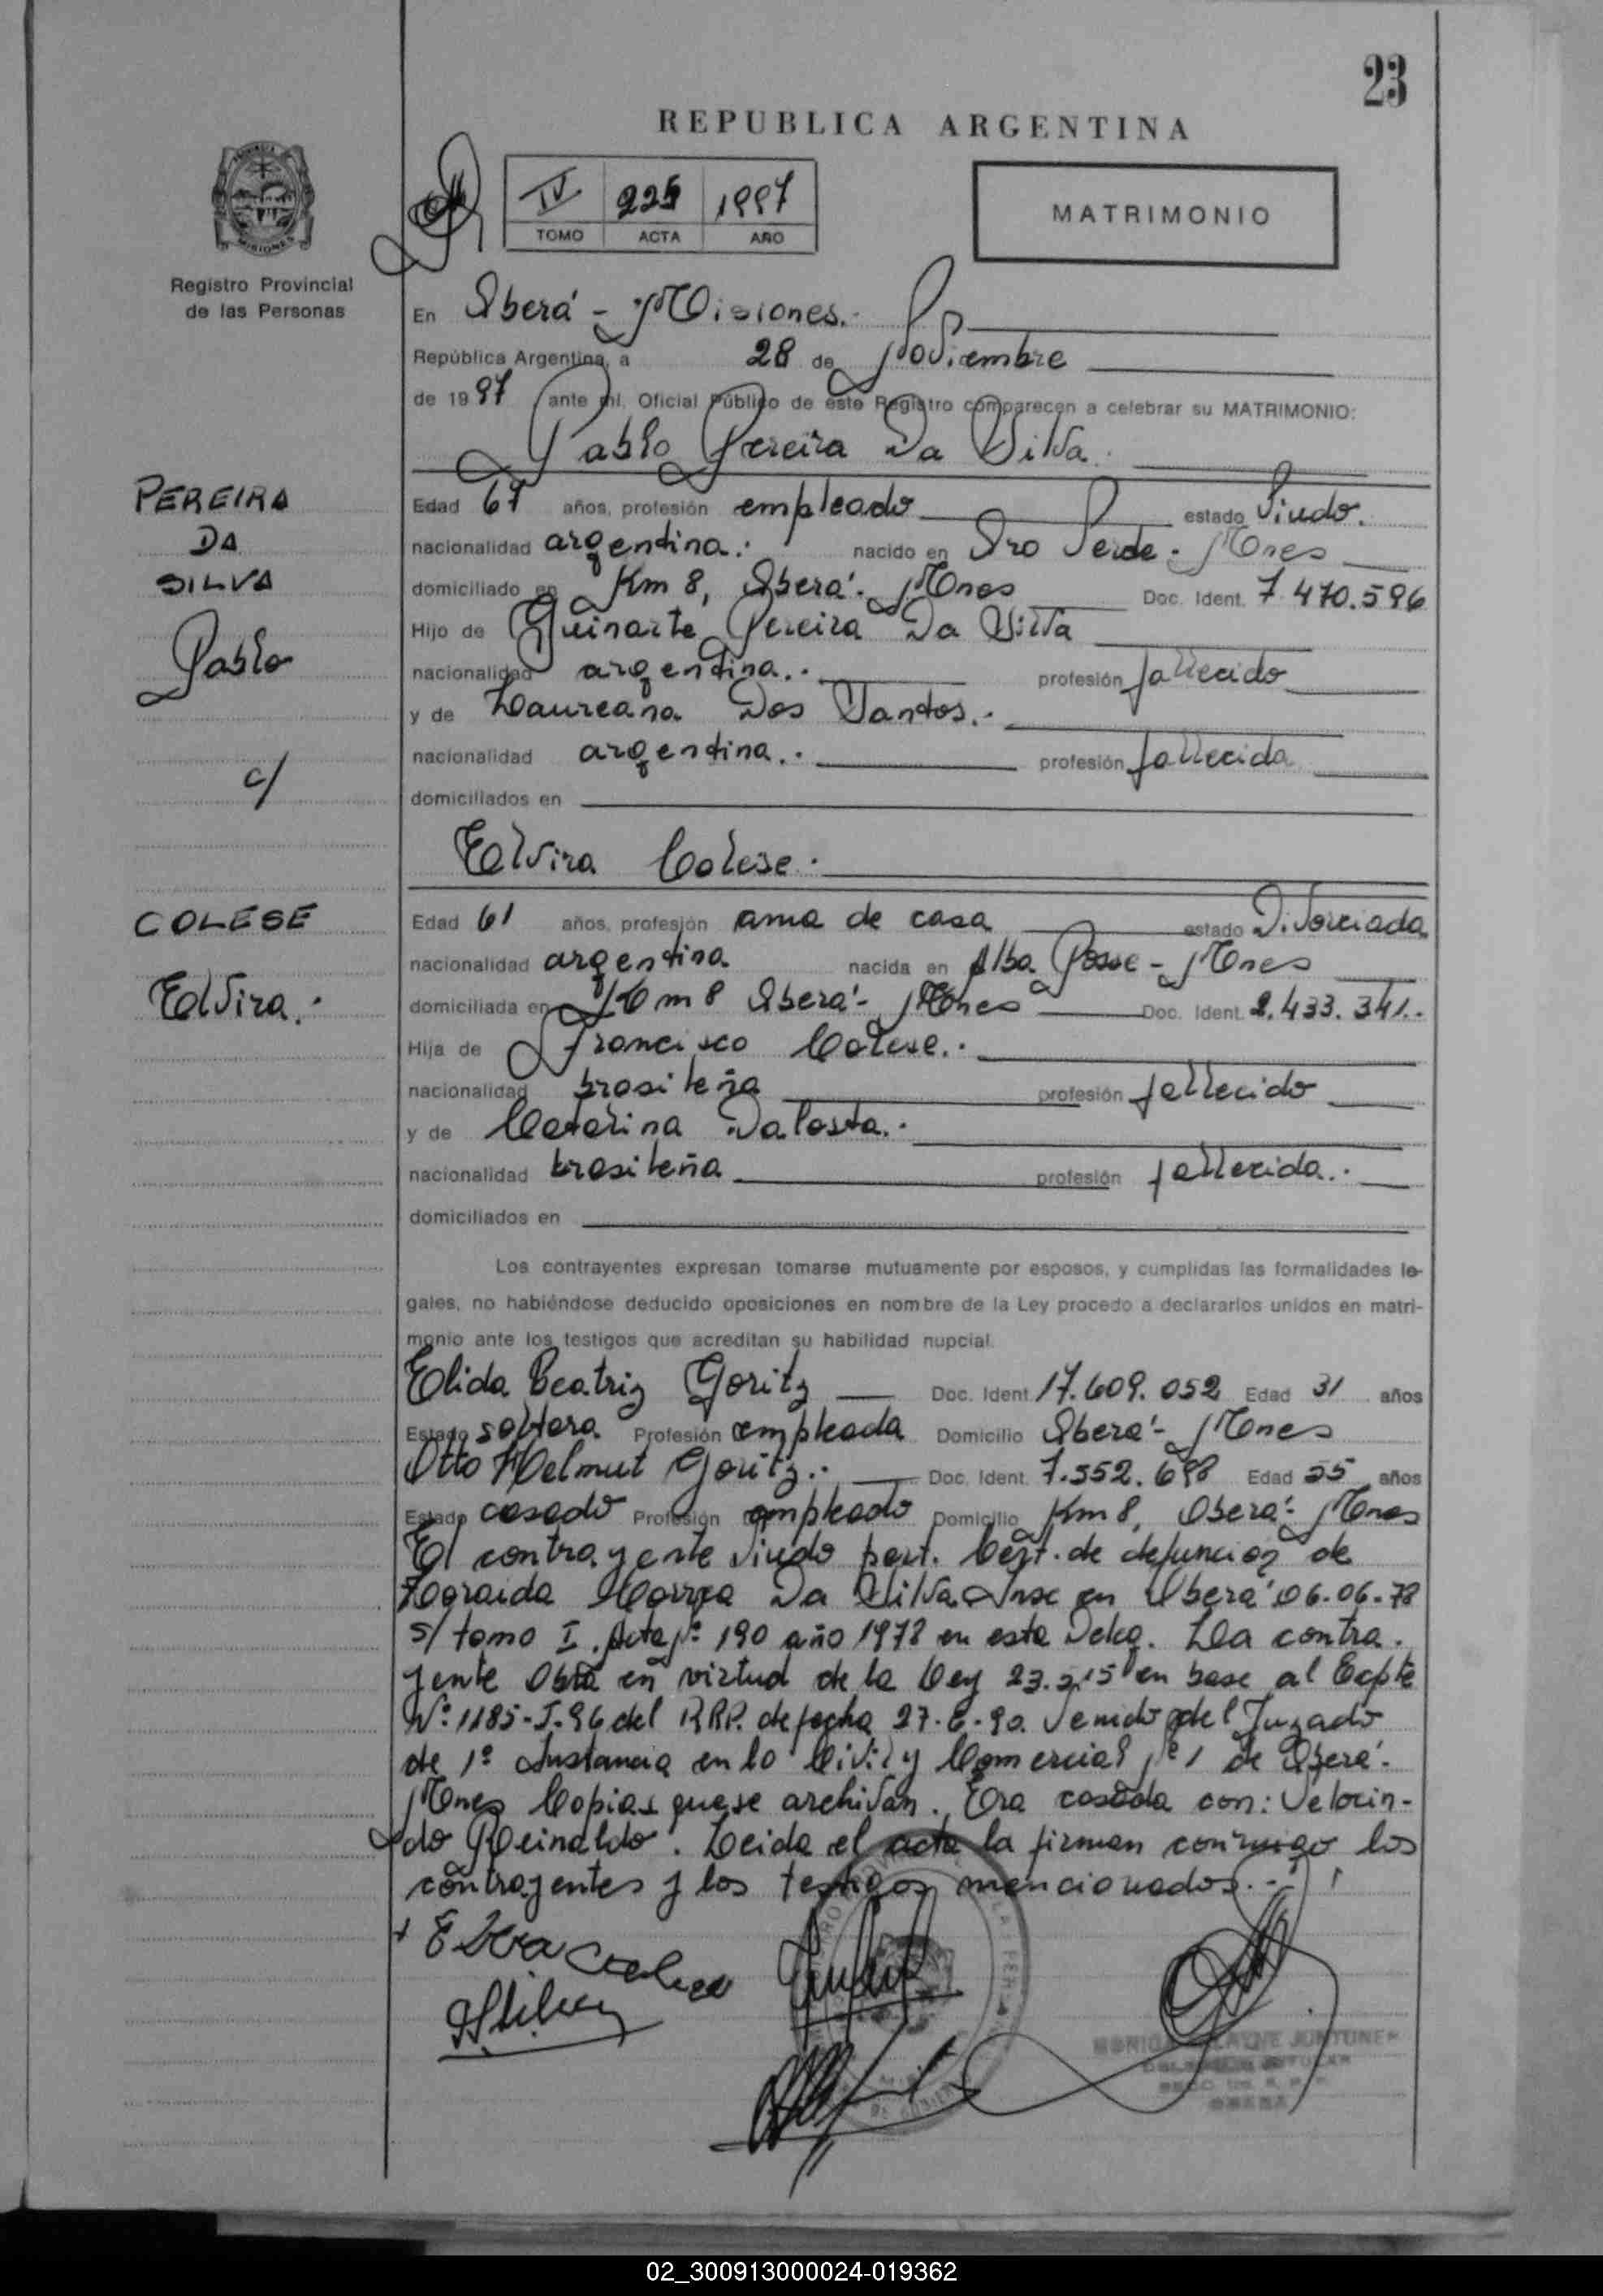 23
REPUBLICA ARGENTINA
IV 225 1997
TOMO ACTA AÑO
MATRIMONIO
Registro Provincial
de las Personas
En Oberá - Misiones.-
República Argentina, a 28 de Noviembre
de 1997 ante mi, Oficial Público de este Registro comparecen a celebrar su MATRIMONIO:
Pablo Pereira Da Silva.
PEREIRA
DA
SILVA
Pablo
c/
COLESE
Elvira.-
Edad 67 años, profesión empleado estado Viudo.
nacionalidad argentina.- nacido en Oro Verde - Mnes
domiciliado en Km 8, Oberá - Mnes Doc. Ident. 7.470.596
Hijo de Pereira Da Silva
nacionalidad argentina.- profesión fallecido
y de Laureana Dos Santos.-
nacionalidad argentina.- profesión fallecida
domiciliados en
Elvira Colese.-
Edad 61 años, profesión ama de casa estado Divorciada
nacionalidad argentina nacida en Alba Posse - Mnes
domiciliada en Km 8 Oberá - Mnes Doc. Ident. 2.433.341.-
Hija de Francisco Colese.-
nacionalidad brasileña profesión fallecido
y de Catalina Dalosta.-
nacionalidad brasileña profesión fallecida.-
domiciliados en
Los contrayentes expresan tomarse mutuamente por esposos, y cumplidas las formalidades le-
gales, no habiéndose deducido oposiciones en nombre de la Ley procedo a declararlos unidos en matri-
monio ante los testigos que acreditan su habilidad nupcial.
Elida Beatriz Goritz Doc. Ident. 17.609.052 Edad 31 años
Estado soltera Profesión empleada Domicilio Oberá - Mnes
Otto Helmut Goritz.- Doc. Ident. 7.552.698 Edad 55 años
Estado casado Profesión empleado Domicilio Km 8, Oberá - Mnes
El contrayente viudo part. Cert. de defunción de
Da Silva Insc en Oberá 06-06-78
s/ tomo I Acta Nº 190 año 1978 en esta Deleg. La contra-
yente en virtud de la Ley 23.515 en base al Expte
Nº 1185-I-96 del RPP. de fecha Venido del Juzgado
de 1º Instancia en lo Civil y Comercial Nº 1 de Oberá -
Mnes Copias que se archivan. Era casada con: Velocin-
do Reinaldo. Leida el acta la firman conmigo los
contrayentes y los testigos mencionados.-
02_300913000024-019362